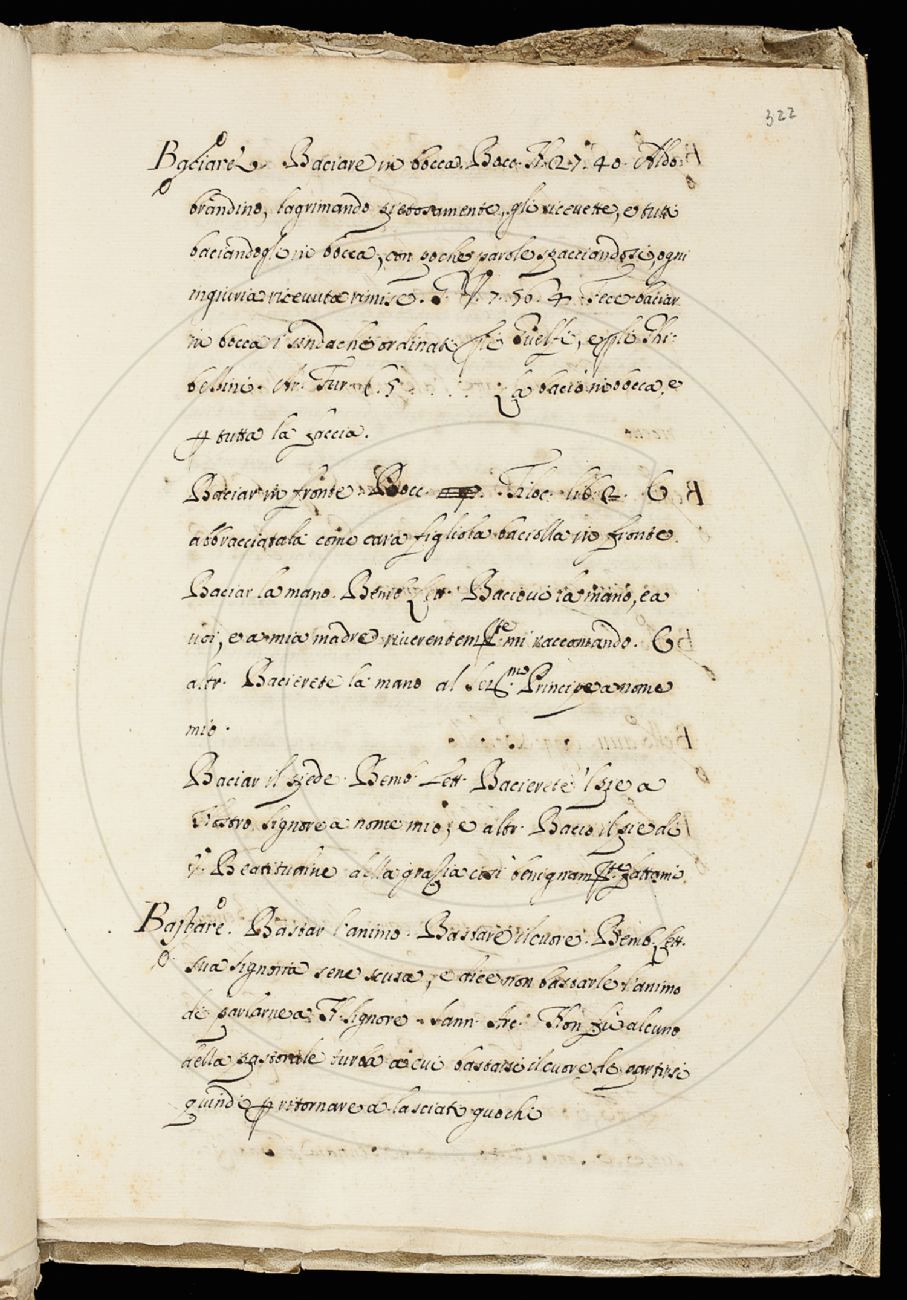 322
Baciare. Baciare in bocca. Bocc. N. 27. 40. Aldo-
brandino, lagrimando pietosamente, gli ricevette, e tutti
baciandogli in bocca, con poche parole spacciandosi, ogni
ingiuria ricevuta rimise. G. V. 7. 56. 4. Fece baciar
in bocca i sindachi ordinati p li Guelfi, e p li Ghi-
bellini. Ar. Fur. 6. 5 La baciò in bocca, e
p tutta la faccia.
Baciar in fronte. Bocc. Filoc. lib. 2. E
abbracciatala come cara figliola baciolla in fronte.
Baciar la mano. Bemb. Lett. Baciovi la mano, e a
voi, e a mia madre riverentemte mi raccomando. E
altr. Bacierete la mano al Sermo Principe a nome
mio.
Baciar il piede. Bemb. Lett. Bacierete 'l pie a
Nostro Signore a nome mio; e altr. Bacio il pie di
V. Beatitudine della grazia così benignamte fattami.
Bastare. Bastar l'animo. Bastare il cuore. Bemb. Lett.
sua signoria sene scusa, e dice non bastarle l'animo
di parlarne a N. Signore. Sann. Arc. Non fu alcuno
della pastorale turba a cui bastasse il cuore di partirsi
quindi p ritornare a lasciati guochi